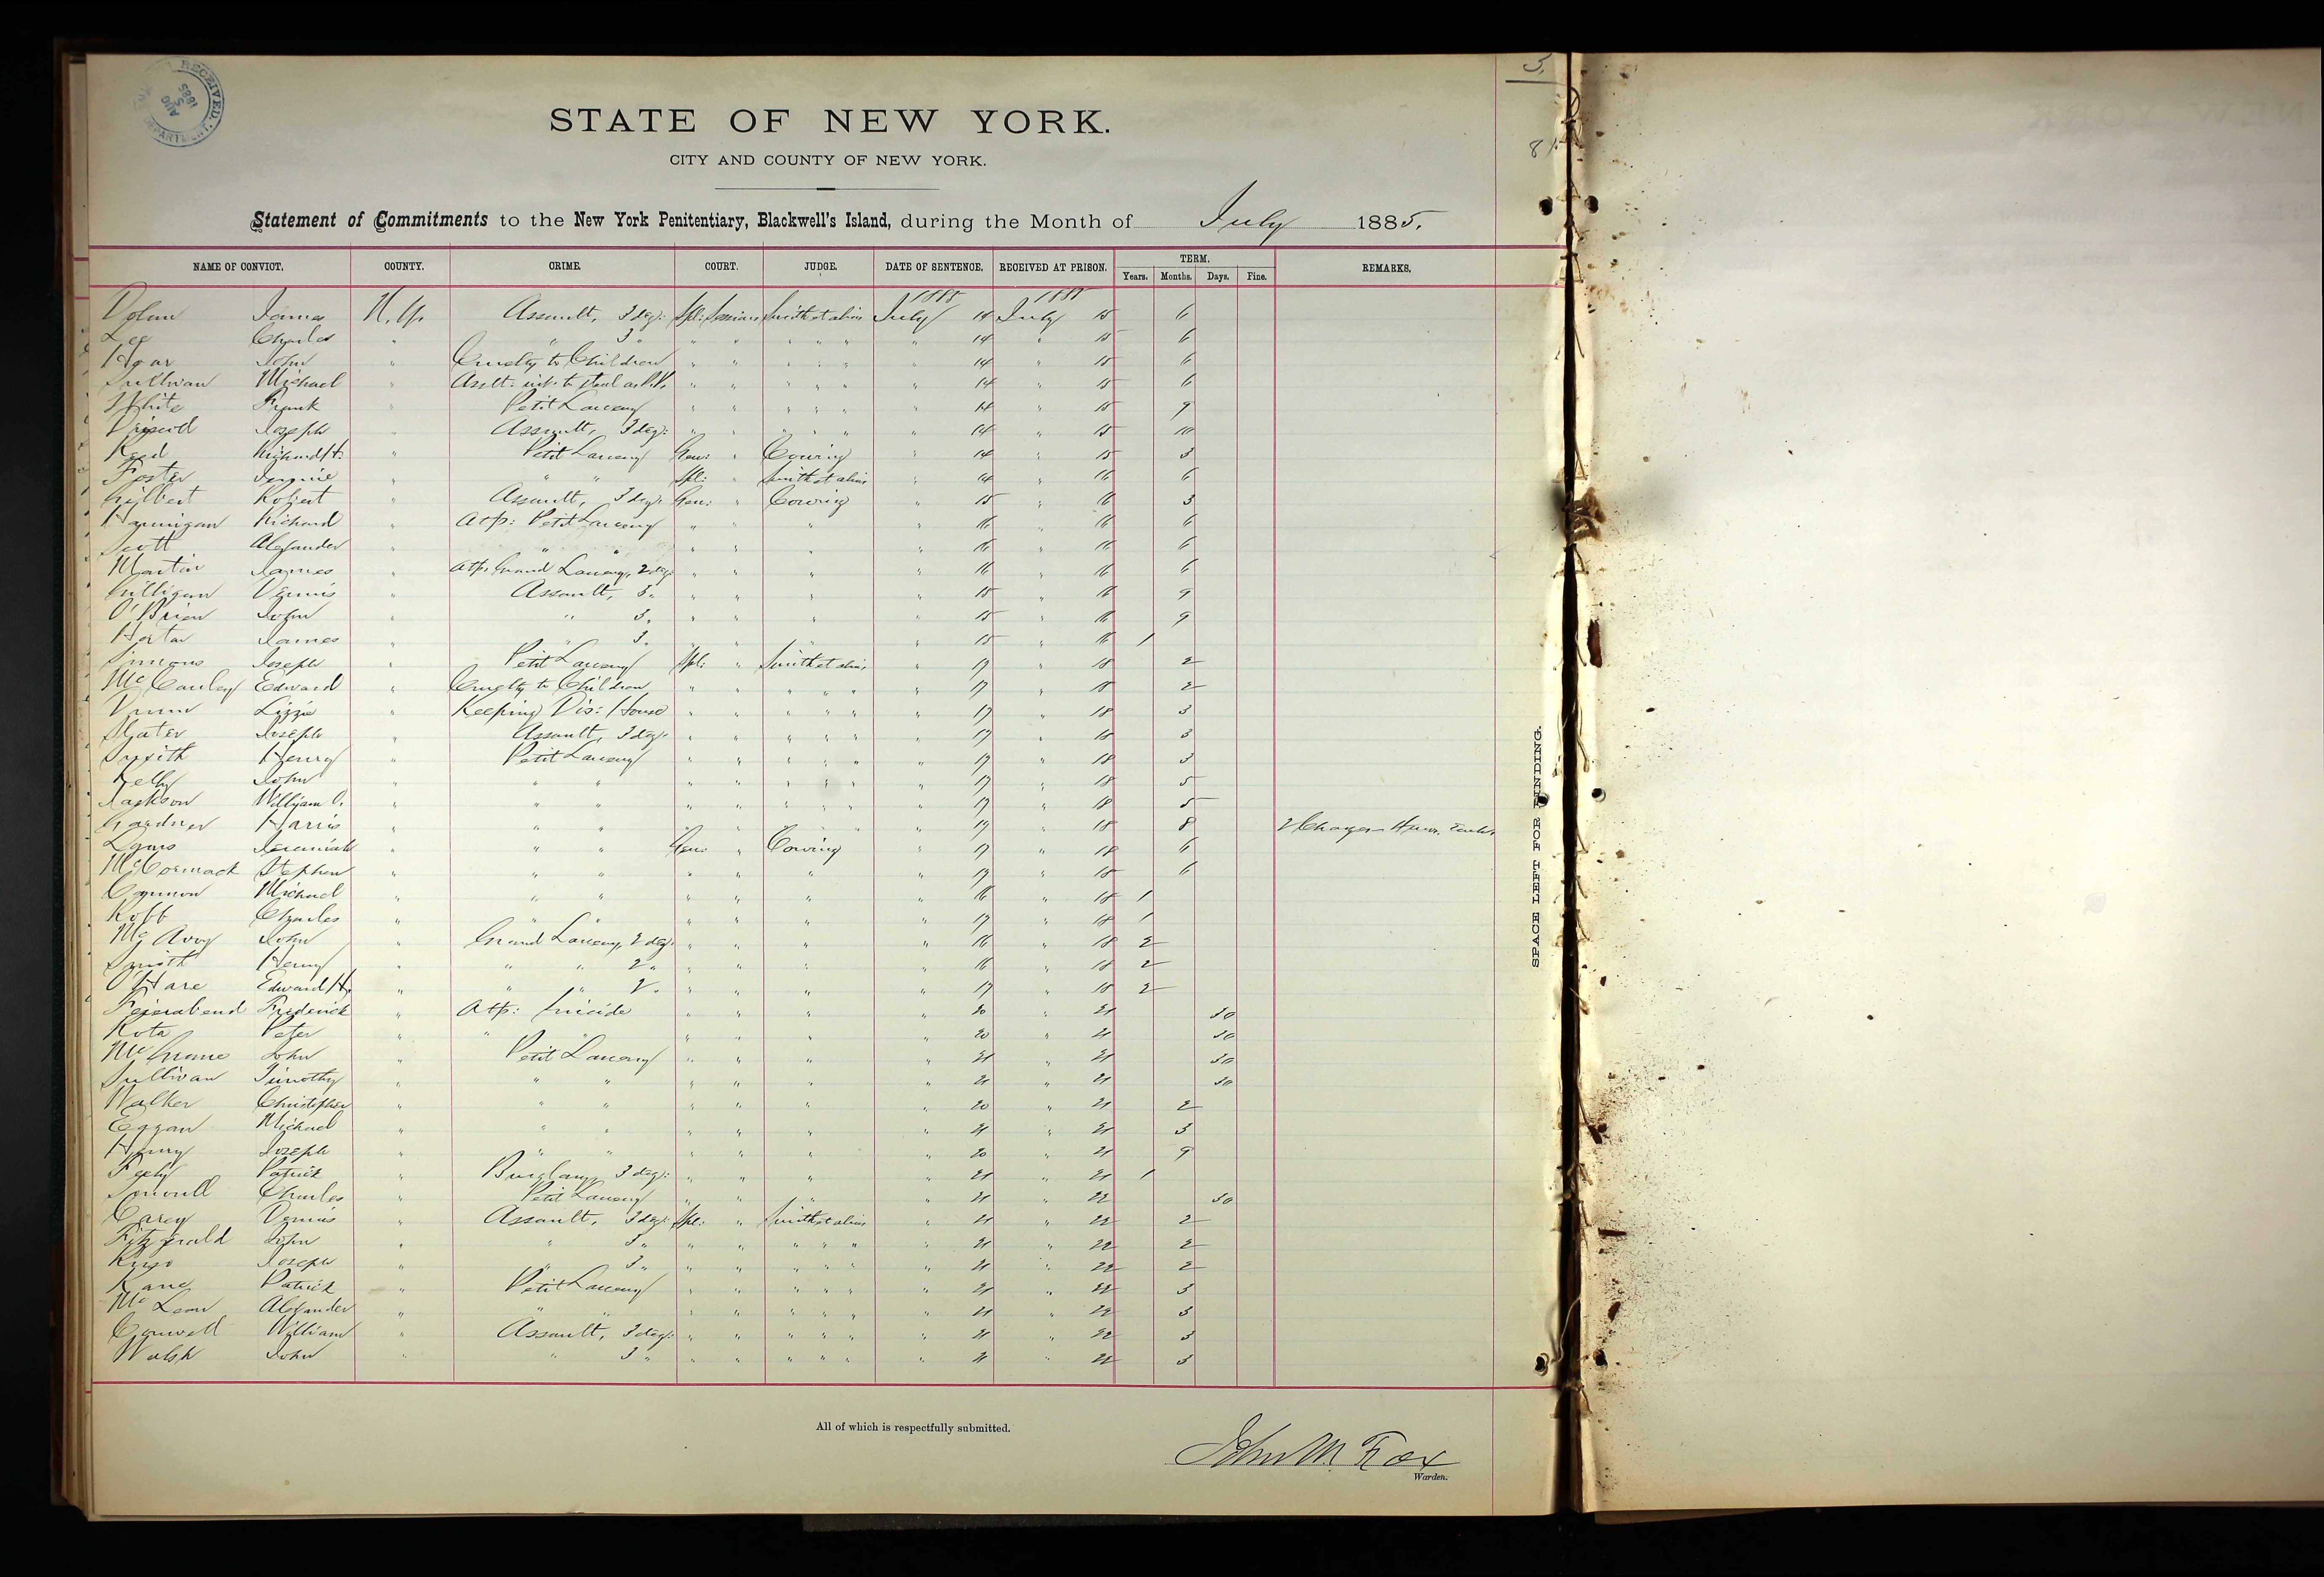 RECEIVED.
AUG
5
1885
DEPARTMENT.
3.
81
STATE OF NEW YORK.
CITY AND COUNTY OF NEW YORK.
Statement of Commitments to the New York Penitentiary, Blackwell's Island, during the Month of July 1885.
NAME OF CONVICT. COUNTY. CRIME. COURT. JUDGE. DATE OF SENTENCE. RECEIVED AT PRISON. TERM. REMARKS.
Years. Months. Days. Fine.
1885 1885
Dolan James N.Y. Assault, 3 deg: Spl: Sessions Smith et alias July 14 July 15 6
Lee Charles " " 3 " " " " " " " 14 " 15 6
Hoar John " Cruelty to Children " " " " " " 14 " 15 6
Sullivan Michael " " " " " " " 14 " 15 6
White Frank " Petit Larceny " " " " " " 14 " 15 9
Driscoll Joseph " Assault, 3 deg: " " " " " " 14 " 15 10
Reed Richard H. " Petit Larceny Gen: " Cowing " 14 " 15 3
Foster Jennie " " " Spl: " Smith et alias " 14 " 16 6
Gilbert Robert " Assault, 3 deg: Gen: " Cowing " 15 " 16 3
Hannigan Richard " Atp: Petit Larceny " " " " 16 " 16 6
Scott Alexander " " " " " " " 16 " 16 6
Martin James " Atp: Grand Larceny, 2 deg: " " " " 16 " 16 6
Gilligan Dennis " Assault, 3 " " " " " 15 " 16 9
O'Brien John " " 3 " " " " " 15 " 16 9
Horton James " " 3 " " " " " 15 " 16 1
Simons Joseph " Petit Larceny Spl: " Smith et alias " 17 " 18 2
McCauley Edward " Cruelty to Children " " " " " " 17 " 18 2
Lizzie " Keeping Dis: House " " " " " " 17 " 18 3
Slater Joseph " Assault, 3 deg: " " " " " " 17 " 18 3
Smith Henry " Petit Larceny " " " " " " 17 " 18 3
Kelly John " " " " " " " " " 17 " 18 5
Jackson William O. " " " " " " " " " 17 " 18 5
Gardner Harris " " " " " " " " " 17 " 18 8 2 Charges 4 mos. Each.
Lyons Jeremiah " " " Gen: " Cowing " 17 " 18 6
McCormack Stephen " " " " " " " 17 " 18 6
Michael " " " " " " " 16 " 18 1
Robb Charles " " " " " " " 17 " 18 1
McAvoy John " Grand Larceny, 2 deg: " " " " 16 " 18 2
Smith Henry " " " 2 " " " " " 16 " 18 2
O'Hare Edward H. " " " 2 " " " " " 17 " 18 2
Feierabend Frederick " Atp: Suicide " " " " 20 " 21 30
Kota Peter " " " " " " " 20 " 21 30
McGrane John " Petit Larceny " " " " 21 " 21 30
Sullivan Timothy " " " " " " " 21 " 21 30
Walker Christopher " " " " " " " 20 " 21 2
Eggan Michael " " " " " " " 21 " 21 3
Henry Joseph " " " " " " " 20 " 21 9
Feely Patrick " Burglary, 3 deg: " " " " 21 " 21 1
Charles " Petit Larceny " " " " 21 " 22 30
Carey Dennis " Assault, 3 deg: Spl: " Smith et alias " 21 " 22 2
Fitzgerald John " " 3 " " " " " " " 21 " 22 2
King Joseph " " 3 " " " " " " " 21 " 22 2
Kane Patrick " Petit Larceny " " " " " " 21 " 22 3
McLean Alexander " " " " " " " " " 21 " 22 3
Conwell William " Assault, 3 deg: " " " " " " 21 " 22 3
Walsh John " " 3 " " " " " " " 21 " 22 3
SPACE LEFT FOR BINDING.
All of which is respectfully submitted.
John M. Fox
Warden.